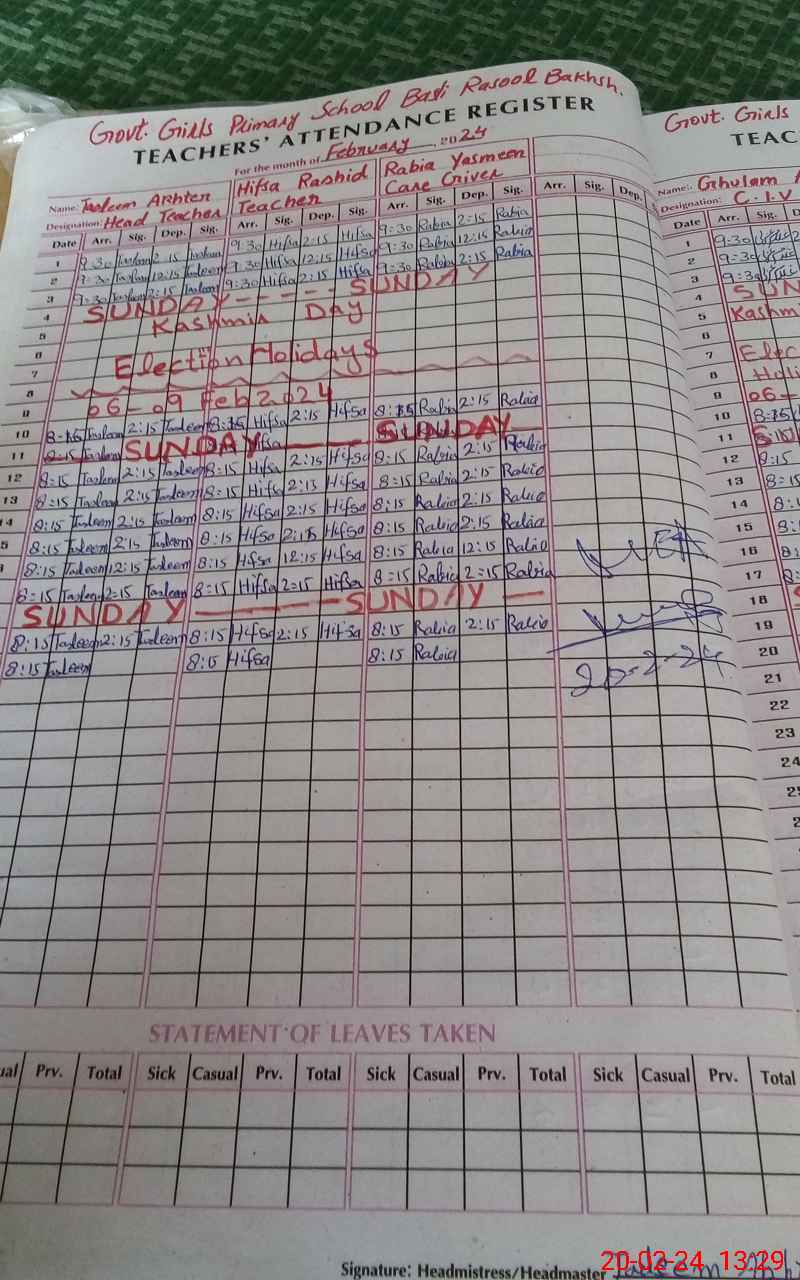 Govt. Girls Primary School Basti Rasool Bakhsh.
Govt. Girls
TEACHERS' ATTENDANCE REGISTER
TEAC
For the month of February 2024
Name: Tasleem Akhter Hifsa Rashid Rabia Yasmeen
Name:. Ghulam
Designation: Head Teacher Teacher Care Giver
Designation: C.I.V
Date Arr. Sig. Dep. Sig. Arr. Sig. Dep. Sig. Arr. Sig. Dep. Sig. Arr. Sig. Dep.
Date Arr. Sig.
1 9:30 Tasleem 2:15 Tasleem 9:30 Hifsa 2:15 Hifsa 9:30 Rabia 2:15 Rabia
1 9:30
2 9:30 Tasleem 12:15 Tasleem 9:30 Hifsa 12:15 Hifsa 9:30 Rabia 12:15 Rabia
2 9:30
3 9:30 Tasleem 2:15 Tasleem 9:30 Hifsa 2:15 Hifsa 9:30 Rabia 2:15 Rabia
3 9:30
4 SUNDAY - - - - - SUNDAY
4 SUN
5 Kashmir Day
5 Kashm
6
6
7 Election Holidays
7 Elec
8
8 Holi
9 06-09 Feb 2024
9 06-
10 8:15 Tasleem 2:15 Tasleem 8:15 Hifsa 2:15 Hifsa 8:15 Rabia 2:15 Rabia
10 8:15
11 SUNDAY SUNDAY
11
12 8:15 Tasleem 2:15 Tasleem 8:15 Hifsa 2:15 Hifsa 8:15 Rabia 2:15 Rabia
12 8:15
13 8:15 Tasleem 2:15 Tasleem 8:15 Hifsa 2:15 Hifsa 8:15 Rabia 2:15 Rabia
13 8:15
14 8:15 Tasleem 2:15 Tasleem 8:15 Hifsa 2:15 Hifsa 8:15 Rabia 2:15 Rabia
14 8:1
8:15 Tasleem 2:15 Tasleem 8:15 Hifsa 2:15 Hifsa 8:15 Rabia 2:15 Rabia
15
8:15 Tasleem 12:15 Tasleem 8:15 Hifsa 12:15 Hifsa 8:15 Rabia 12:15 Rabia
16
8:15 Tasleem 2:15 Tasleem 8:15 Hifsa 2:15 Hifsa 8:15 Rabia 2:15 Rabia
17
SUNDAY SUNDAY
18
8:15 Tasleem 2:15 Tasleem 8:15 Hifsa 2:15 Hifsa 8:15 Rabia 2:15 Rabia
19
8:15 Tasleem 8:15 Hifsa 8:15 Rabia
20
20-2-24
21
22
23
24
STATEMENT OF LEAVES TAKEN
Prv. Total Sick Casual Prv. Total Sick Casual Prv. Total Sick Casual Prv. Total
Signature: Headmistress/Headmaster
20-02-24 13:29